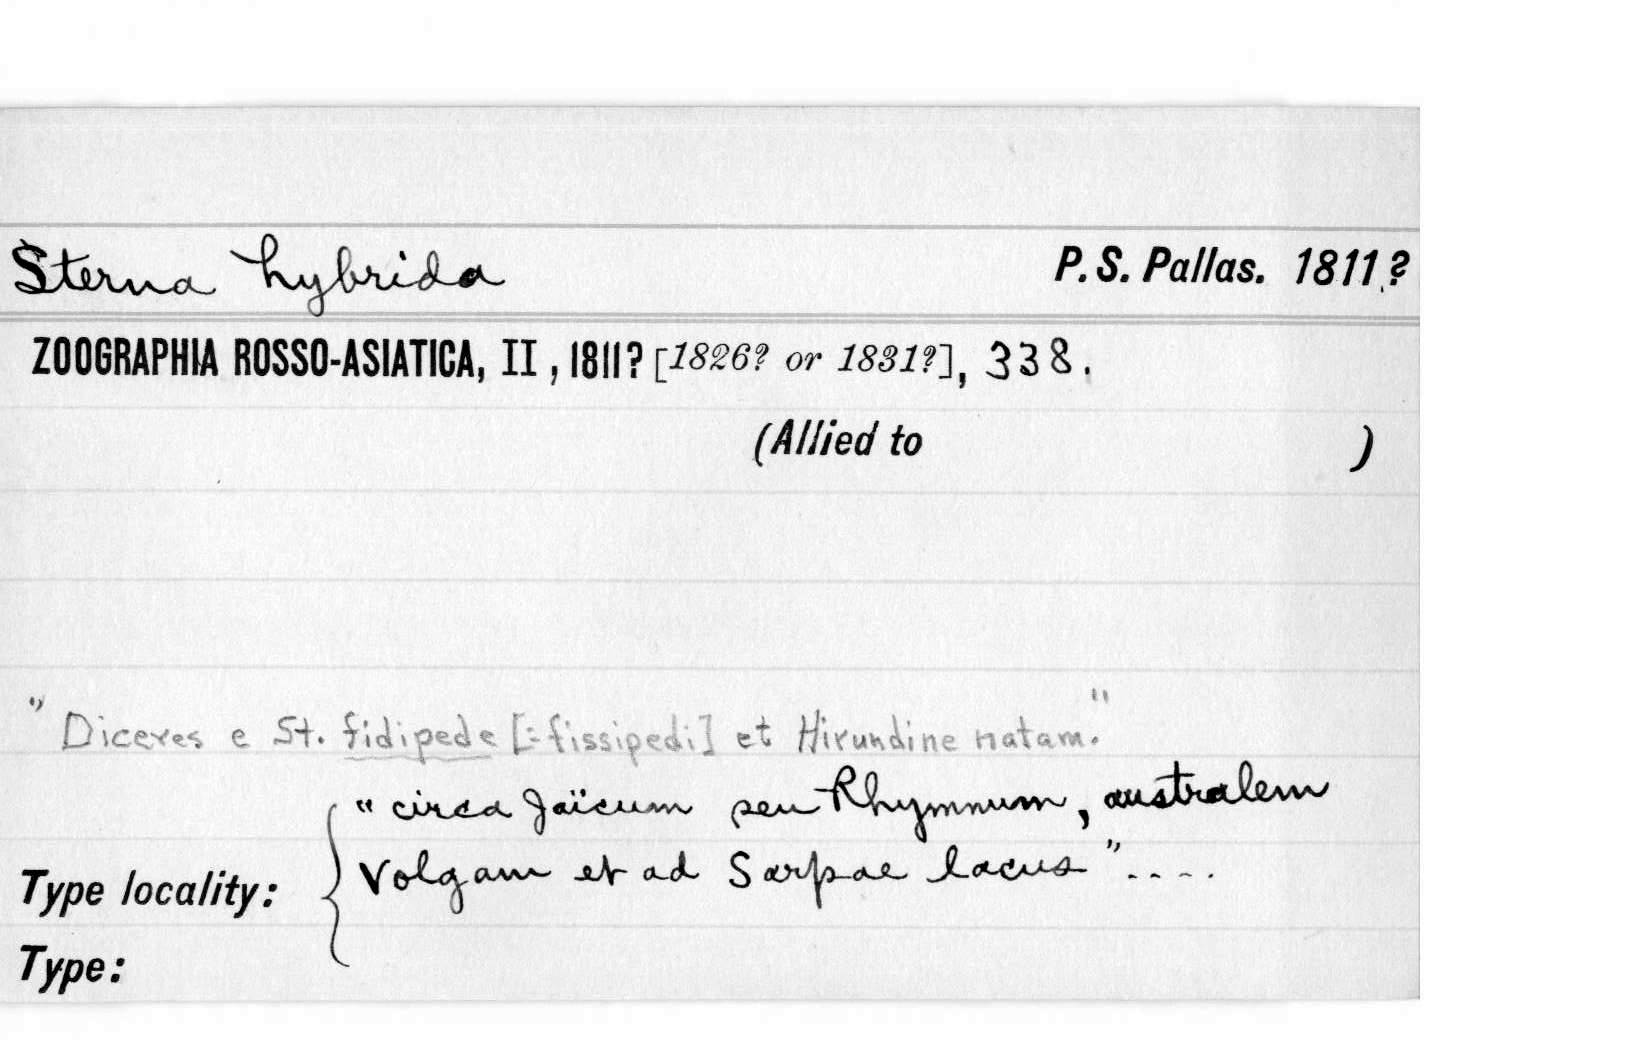 Sterna hybrida P. S. Pallas. 1811?
ZOOGRAPHIA ROSSO-ASIATICA, II, 1811? [1826? or 1831?], 338.
(Allied to )
"Diceres e St. fidipede [=fissipedi] et Hirundine natam."
"circa Jaïcum seu Rhymnum, australem
Volgam et ad Sarpae lacus"....
Type locality:
Type: